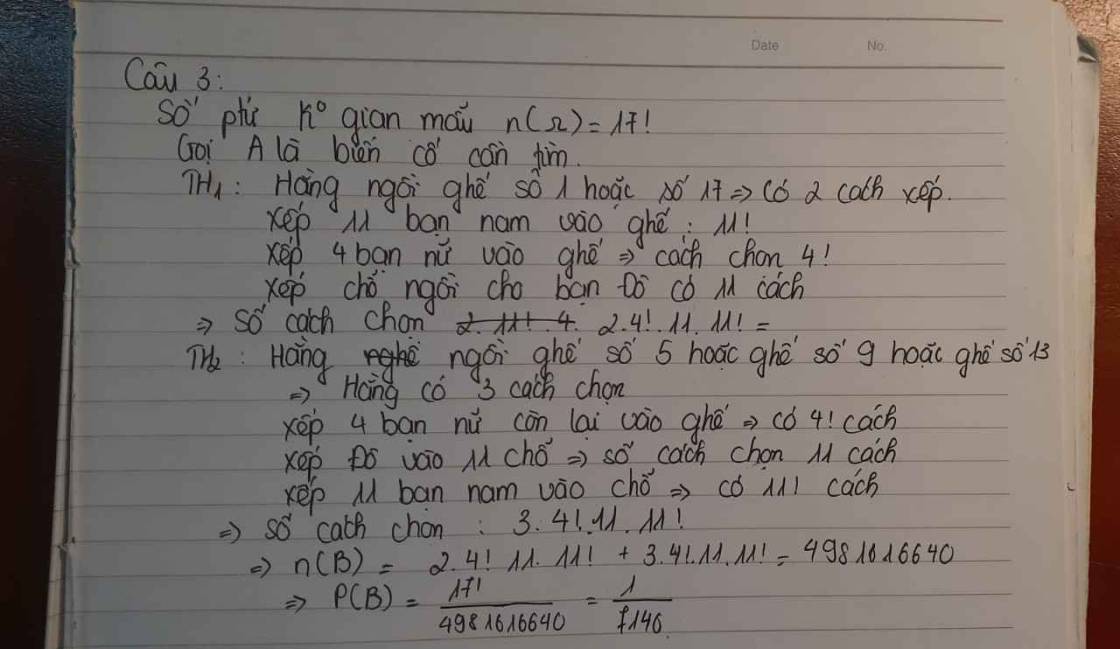 Date No.
Câu 3:
Số ptử k° gian mẫu n(Ω) = 17!
Gọi A là biến cố cần tìm.
TH1: Hằng ngồi ghế số 1 hoặc số 17 ⇒ có 2 cách xếp.
xếp 11 bạn nam vào ghế : 11!
xếp 4 bạn nữ vào ghế ⇒ cách chọn 4!
xếp chỗ ngồi cho bạn Đô có 11 cách
⇒ Số cách chọn 2. 11! . 4. 2.4!.11.11! =
TH2: Hằng nghế ngồi ghế số 5 hoặc ghế số 9 hoặc ghế số 13
⇒ Hằng có 3 cách chọn
xếp 4 bạn nữ còn lại vào ghế ⇒ có 4! cách
xếp Đô vào 11 chỗ ⇒ số cách chọn 11 cách
xếp 11 bạn nam vào chỗ ⇒ có 11! cách
⇒ số cách chọn : 3.4!.11.11!
⇒ n(B) = 2.4! 11. 11! + 3.4!.11.11! = 4981616640
⇒ P(B) = 17! / 4981616640 = 1 / 7140